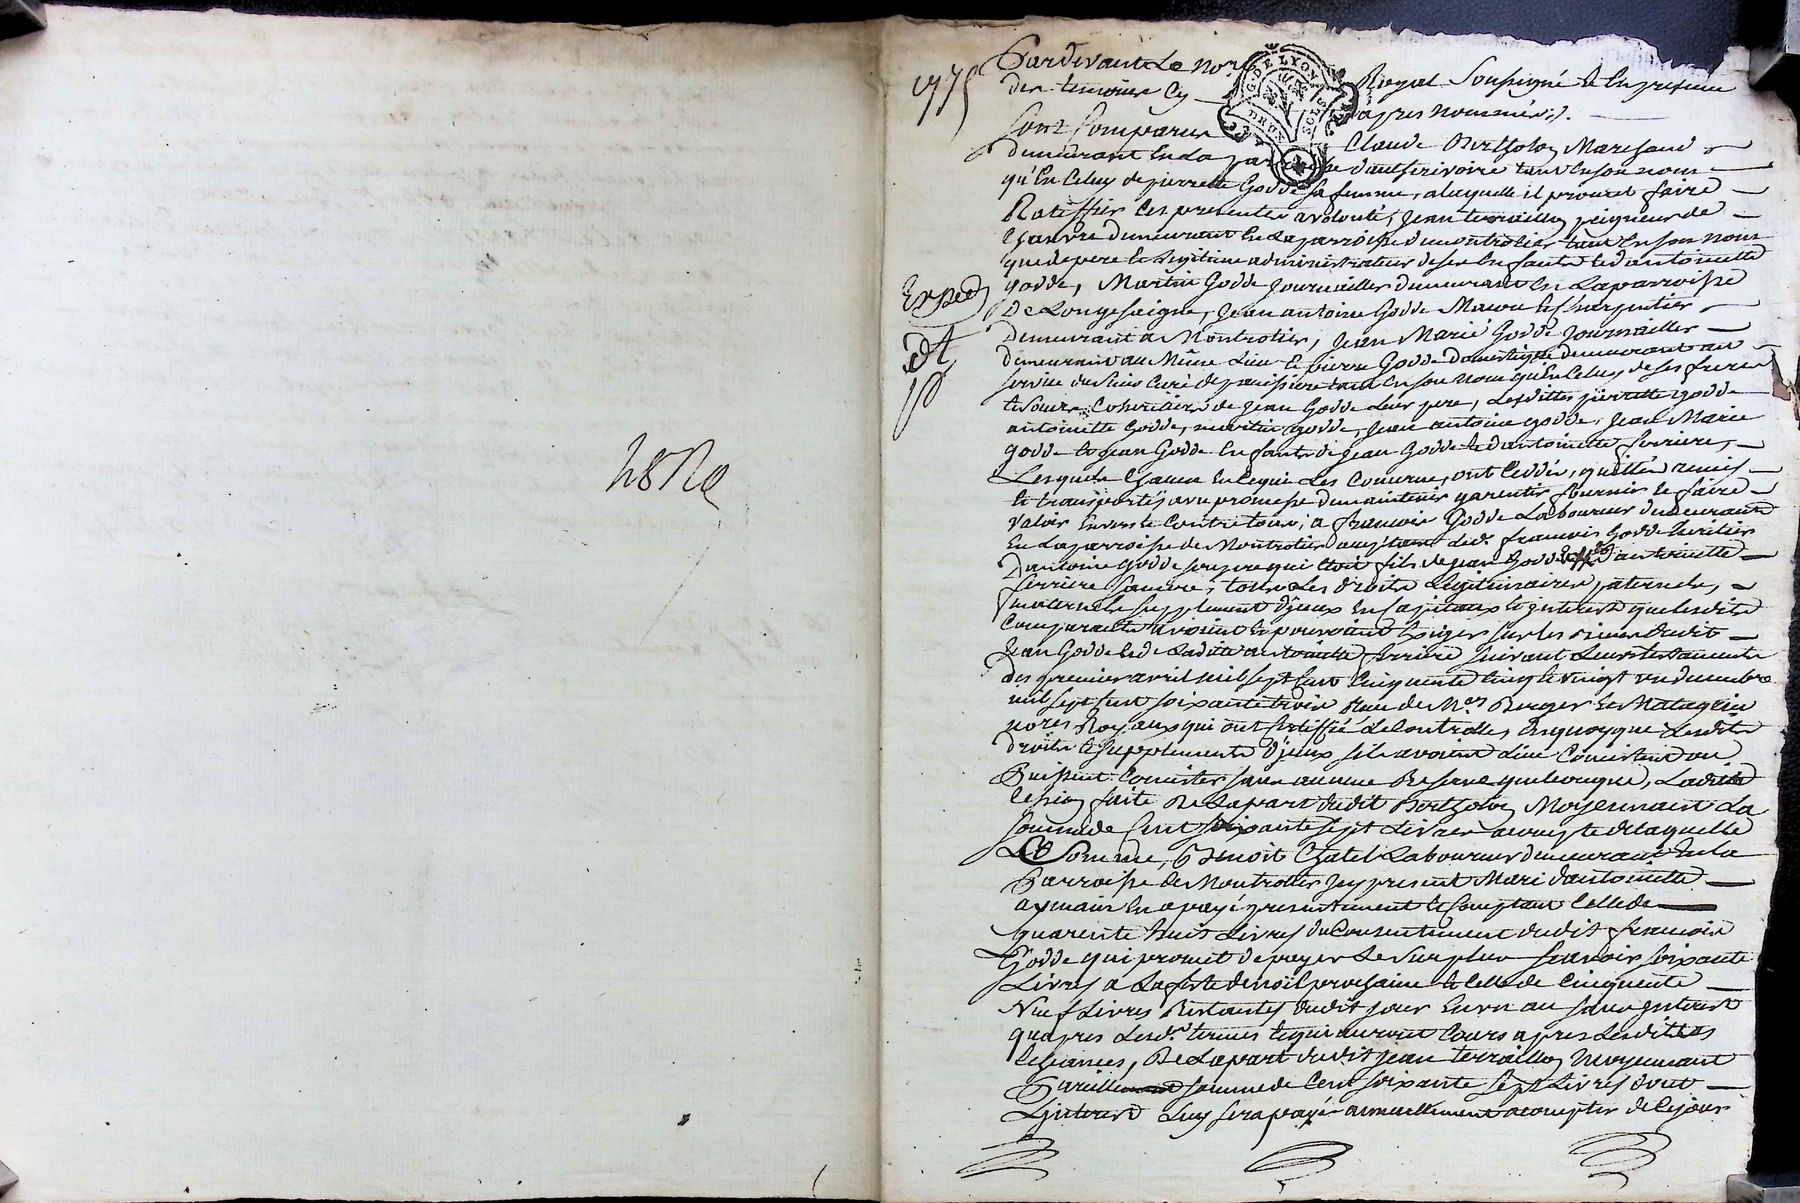 1775
Pardevant Le No.re Royal Soussigné Et En presence
des temoins Cy apres nommés :/.
G. DE LYON
DEUX SOLS
Sont Comparus Claude Bertholon Marchand
demeurant En La parroisse d'aufferivoire tant En son nom
qu'En Celuy de pierrette Godde sa femme, a laquelle il promet faire
Ratiffier Ces presentes a volonté, Jean terraillon peigneur de
Chanvre demeurant En La parroisse de montrotier tant En son nom
que de pere Et Legitime administrateur de ses Enfants Et d'antoinette
Exped
godde, Martin Godde Journaillier demeurant En La parroisse
De Longesaigne, Jean antoine Godde Charpentier
demeurant a Montrotier, Jean Marie Godde Journaillier
demeurant au Même Lieu Et pierre Godde Domestique demeurant au
service du Sieur Curé de tant En son nom qu'En Celuy de ses freres
Et soeurs Coheritiers de Jean Godde Leur pere, Lesdittes pierrette Godde
antoinette Godde, martin godde, Jean antoine godde, Jean Marie
godde Et Jean Godde Enfants de Jean Godde Et d'antoinette ferriere,
Lesquels Chacun En Ce qui Les Concerne, ont Ceddés, quittés remis
Et transportés avec promesse de maintenir garentir fournir Et faire
valoir Envers Et Contre tous, a francois Godde Laboureur demeurant
En La parroisse de Montrotier led. francois Godde heritier
D'antoine Godde son pere qui Etoit fils de Jean Godde d'antoinette
ferriere tous Les droits Legitimaires paternels,
maternels supplement d'yceux En Capitaux Et interest que lesdits
Comparants avoient Et pouvoient Exiger sur les biens dudit
Jean Godde Et de Laditte antoinette ferriere suivant Leurs testaments
des premier avril mil sept Cent Cinquante Cinq Et vingt un decembre
mil sept Cent soixante trois Recu de M.es Berger Et Matagrin
no.res Royaux qui ont Certiffié Le Controlle, En quoy que Lesdits
droits Et supplements d'yceux
Puissent Consister sans aucune Reserve quelconque, Laditte
Cession faite De La part dudit Bertholon Moyennant La
somme de Cent soixante sept Livres a compte de laquelle
Somme, Benoit Chatel Laboureur demeurant En La
Parroisse de Montrotier Icy present Mari d'antoinette
En a payé presentement Et Comptant Celle de
quarente huit Livres du Consentement dudit francois
Godde qui promet de payer Le surplus scavoir soixante
Livres a La feste de noël prochaine Et Celle de Cinquente
Neuf Livres Restantes dudit jour En un an sans interest
qu'apres Lesd. termes Et qui auront Cours apres Lesdittes
Echeances, De La part dudit Jean terraillon Moyennant
Pareille somme de Cent soixante sept Livres dont
L'interest Luy sera payé annuellement a compter de Ce jour